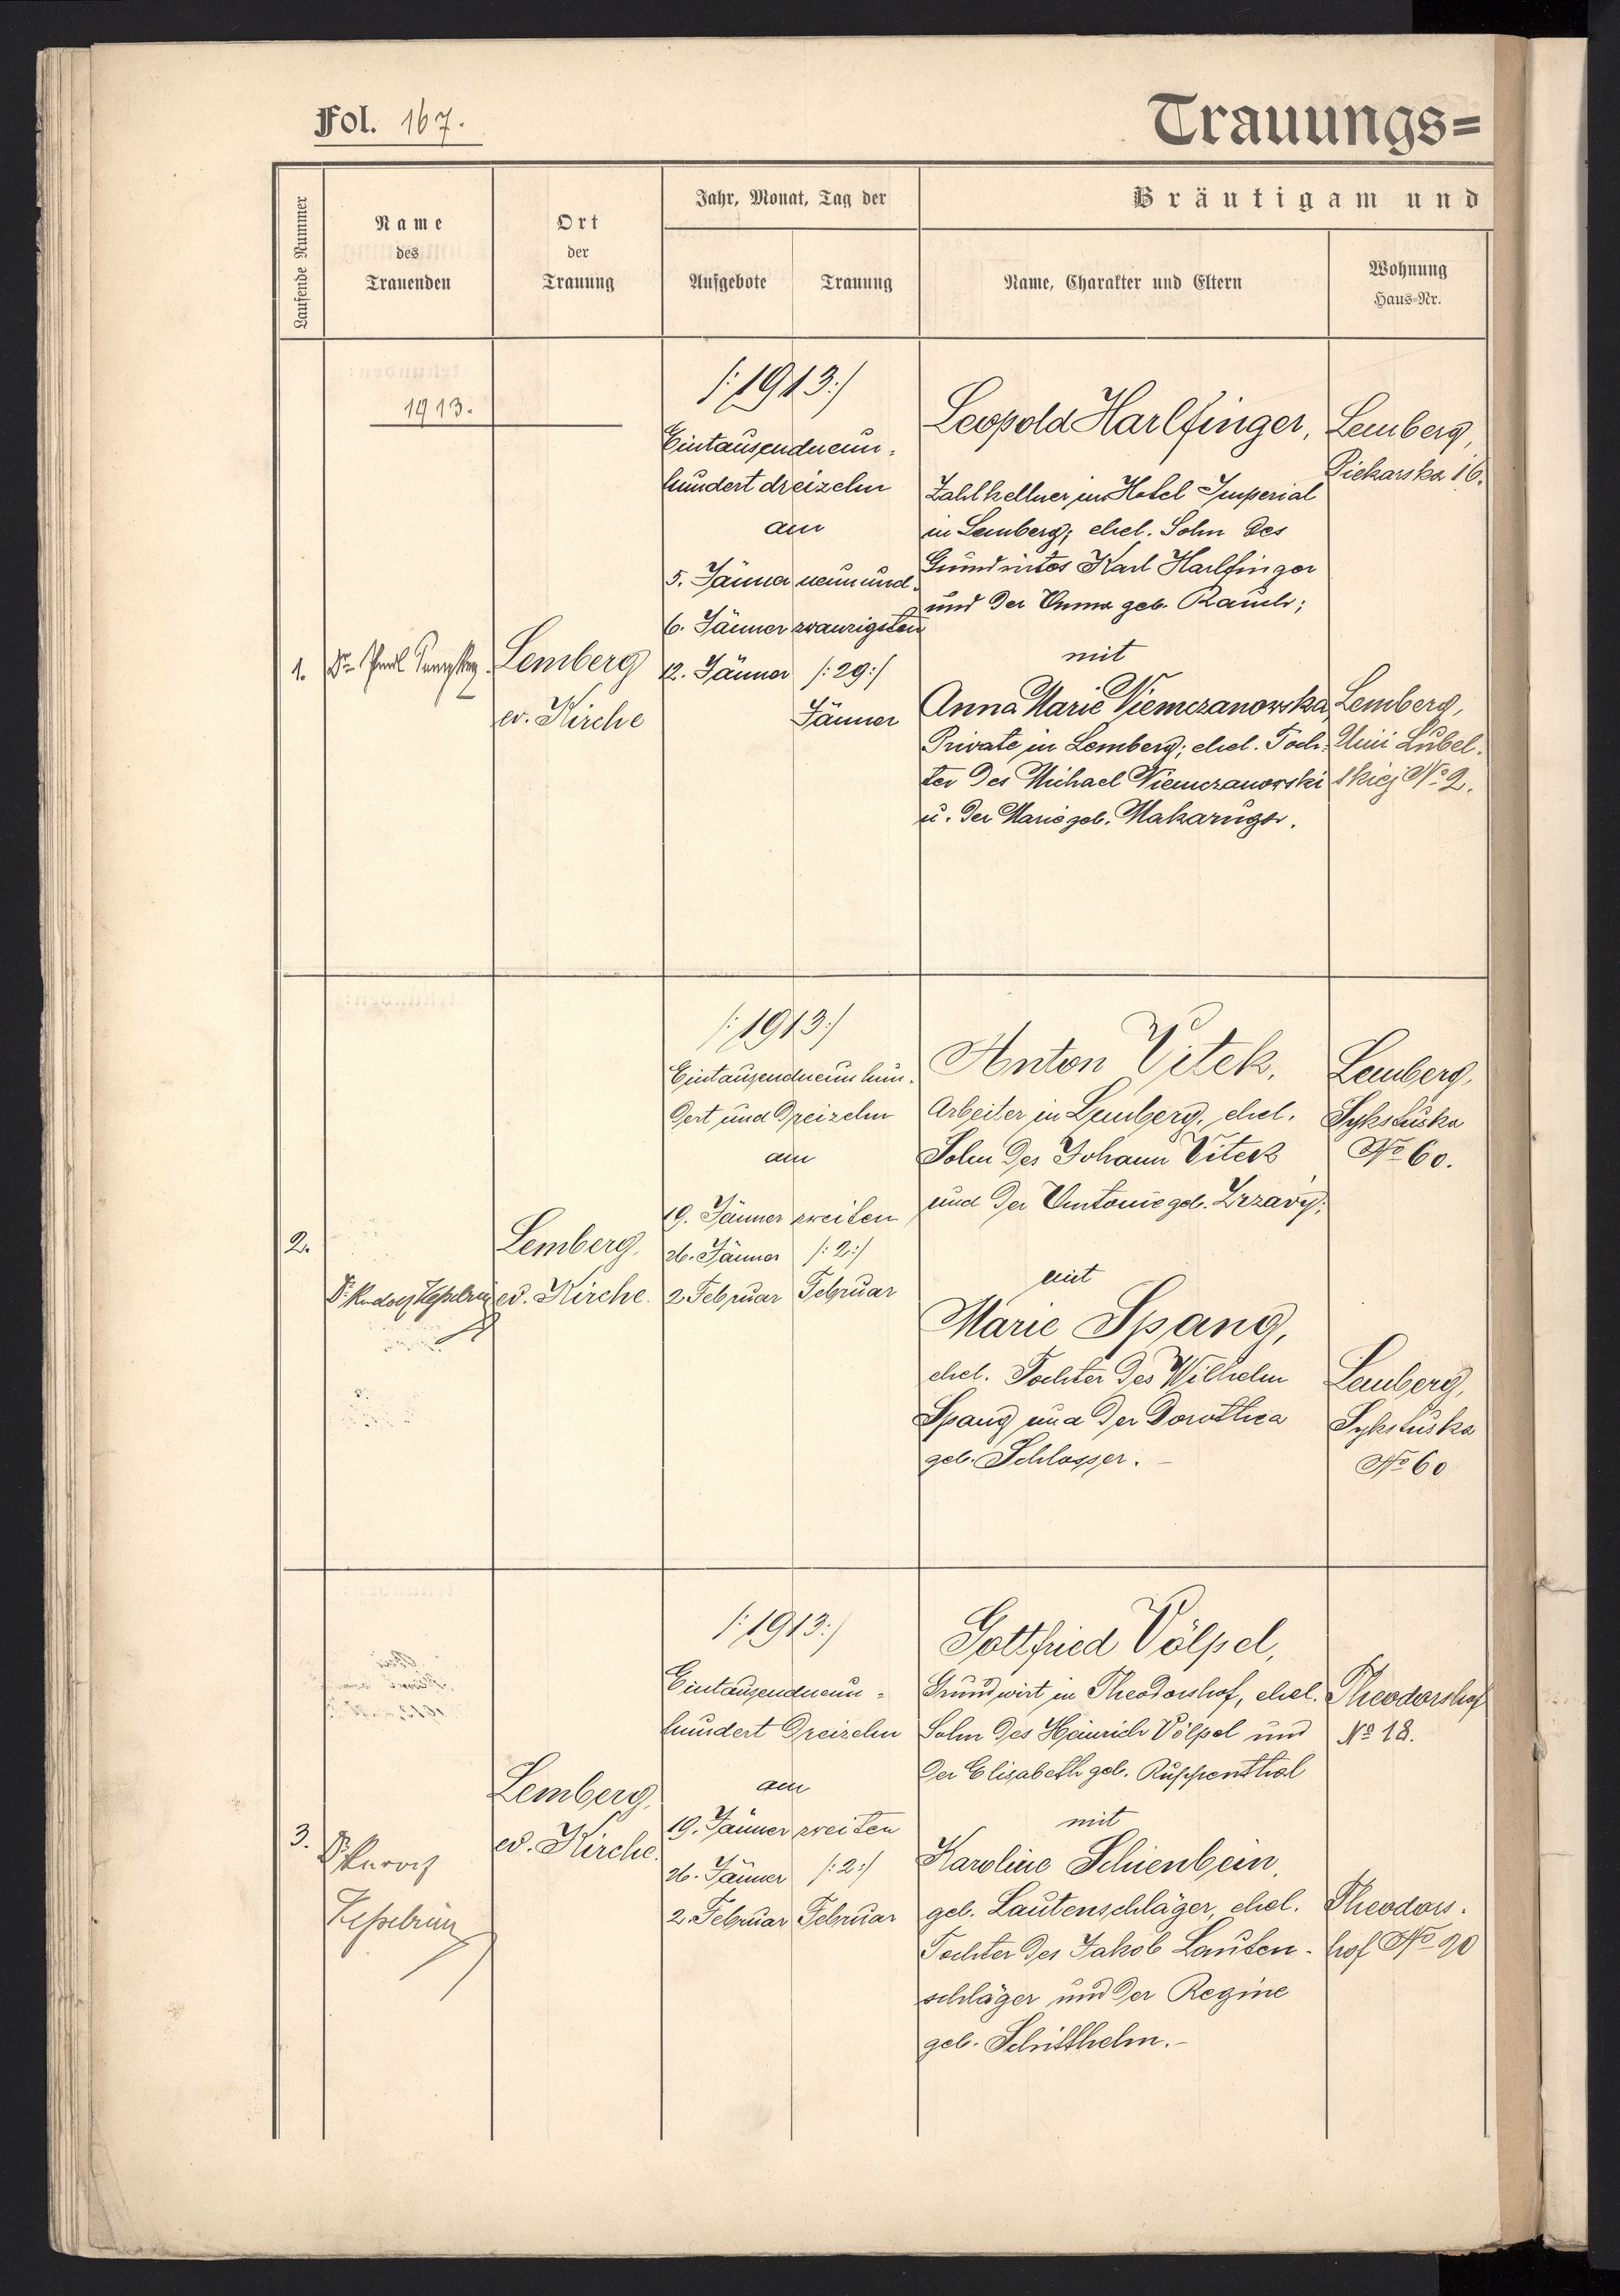 Fol. 167.
Trauungs=
Laufende Nummer
Name
des
Trauenden
Ort
der
Trauung
Jahr, Monat, Tag der
Aufgebote
Trauung
Bräutigam und
Name, Charakter und Eltern
Wohnung
Haus-Nr.
1913.
1.
Dr. Paul
Lemberg
ev. Kirche
/:1913:/
Eintausendneun-
hundert dreizehn
am
5. Jänner neunund-
6. Jänner zwanzigsten
12. Jänner /:29:/
Jänner
Leopold Harlfinger,
Zahlkellner im Hotel Imperial
in Lemberg; ehel. Sohn des
Grundwirtes Karl Harlfinger
und der Anna geb. Rauch;
mit
Anna Marie Niemczanowska,
Private in Lemberg; ehel. Toch-
ter des Michael Niemczanowski
u. der Marie geb.
Lemberg,
Piekarska 16.
Lemberg,
Unii Lubel-
skiej No 2.
2.
Dr. Rudolf Kesselring
Lemberg,
ev. Kirche.
/:1913:/
Eintausendneunhun-
dert und dreizehn
am
19. Jänner zweiten
26. Jänner /:2:/
2. Februar Februar
Anton Vitek,
Arbeiter in Lemberg, ehel.
Sohn des Johann Vitek
und der Antonie geb. Zrzavý;
mit
Marie Spang,
ehel. Tochter des Wilhelm
Spang und der Dorothea
geb. Schlosser. –
Lemberg,
Sykstuska
No 60.
Lemberg,
Sykstuska
No 60
3.
Dr. Rudolf
Kesselring
Lemberg,
ev. Kirche.
/:1913:/
Eintausendneun-
hundert dreizehn
am
19. Jänner zweiten
26. Jänner /:2:/
2. Februar Februar
Gottfried Völpel,
Grundwirt in Theodorshof, ehel.
Sohn des Heinrich Völpel und
der Elisabeth geb. Ruppenthal
mit
Karoline Schienbein,
geb. Lautenschläger, ehel.
Tochter des Jakob Lauten-
schläger und der Regine
geb. Schitthelm. –
Theodorshof
No 18.
Theodors-
hof No 20